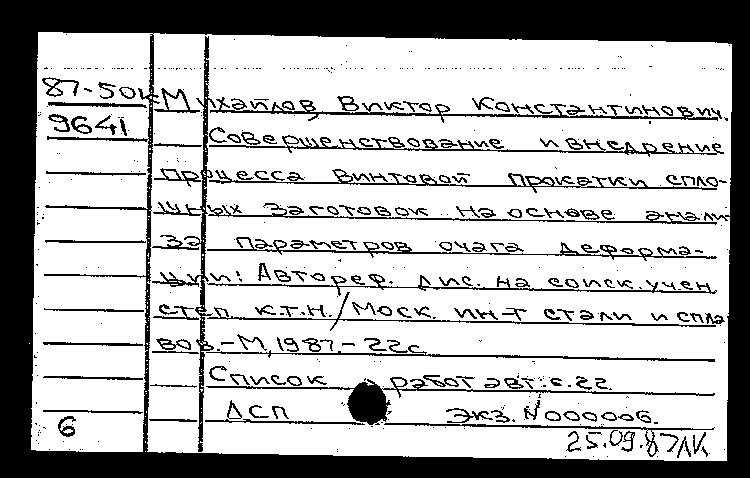 87-50к Михайлов, Виктор Константинович.
9641 Совершенствование и внедрение
процесса винтовой прокатки спло-
шных заготовок на основе анали-
за параметров очага деформа-
ции: Автореф. дис. на соиск. учен
степ к.т.н./Моск. ин-т стали и спла
вов.-М,1987.-22с
Список работ авт.:с.22.
ДСП экз. N000006.
6 25.09.87ЛК